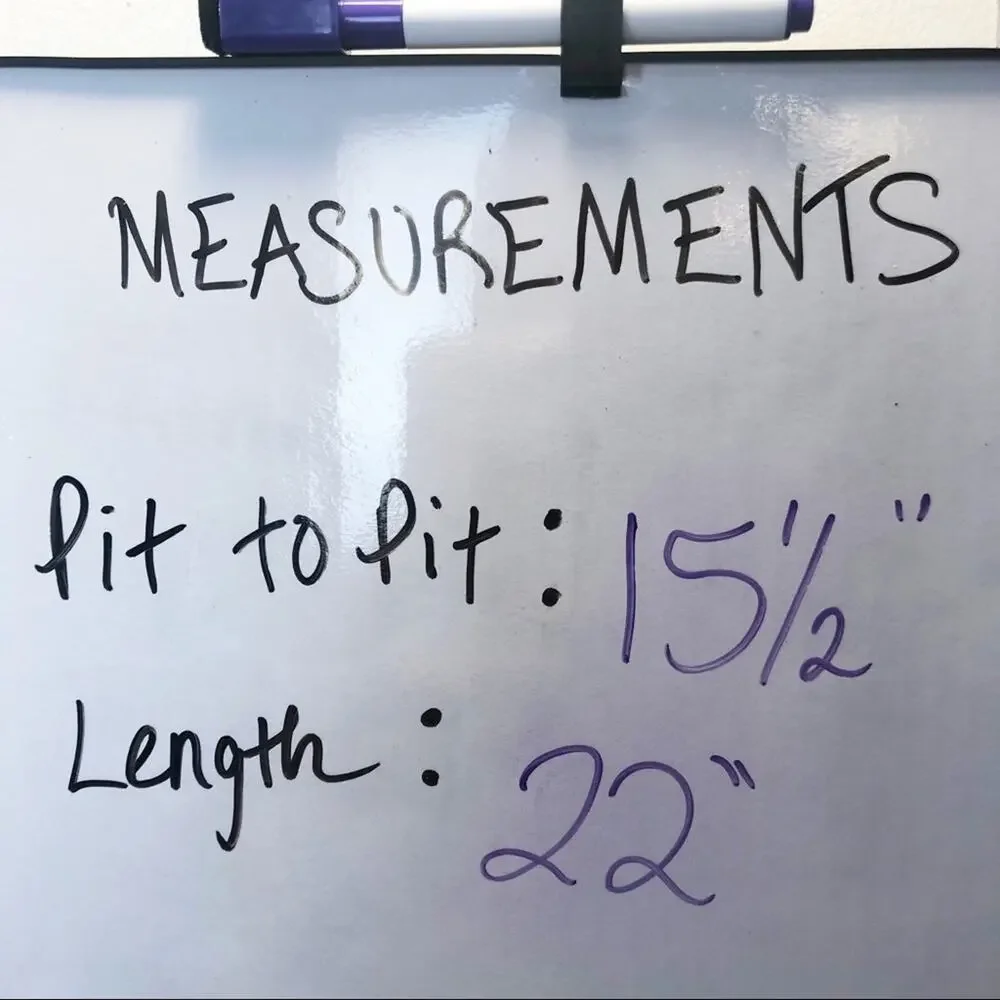 MEASUREMENTS
Pit to Pit : 15 1/2 "
Length : 22"